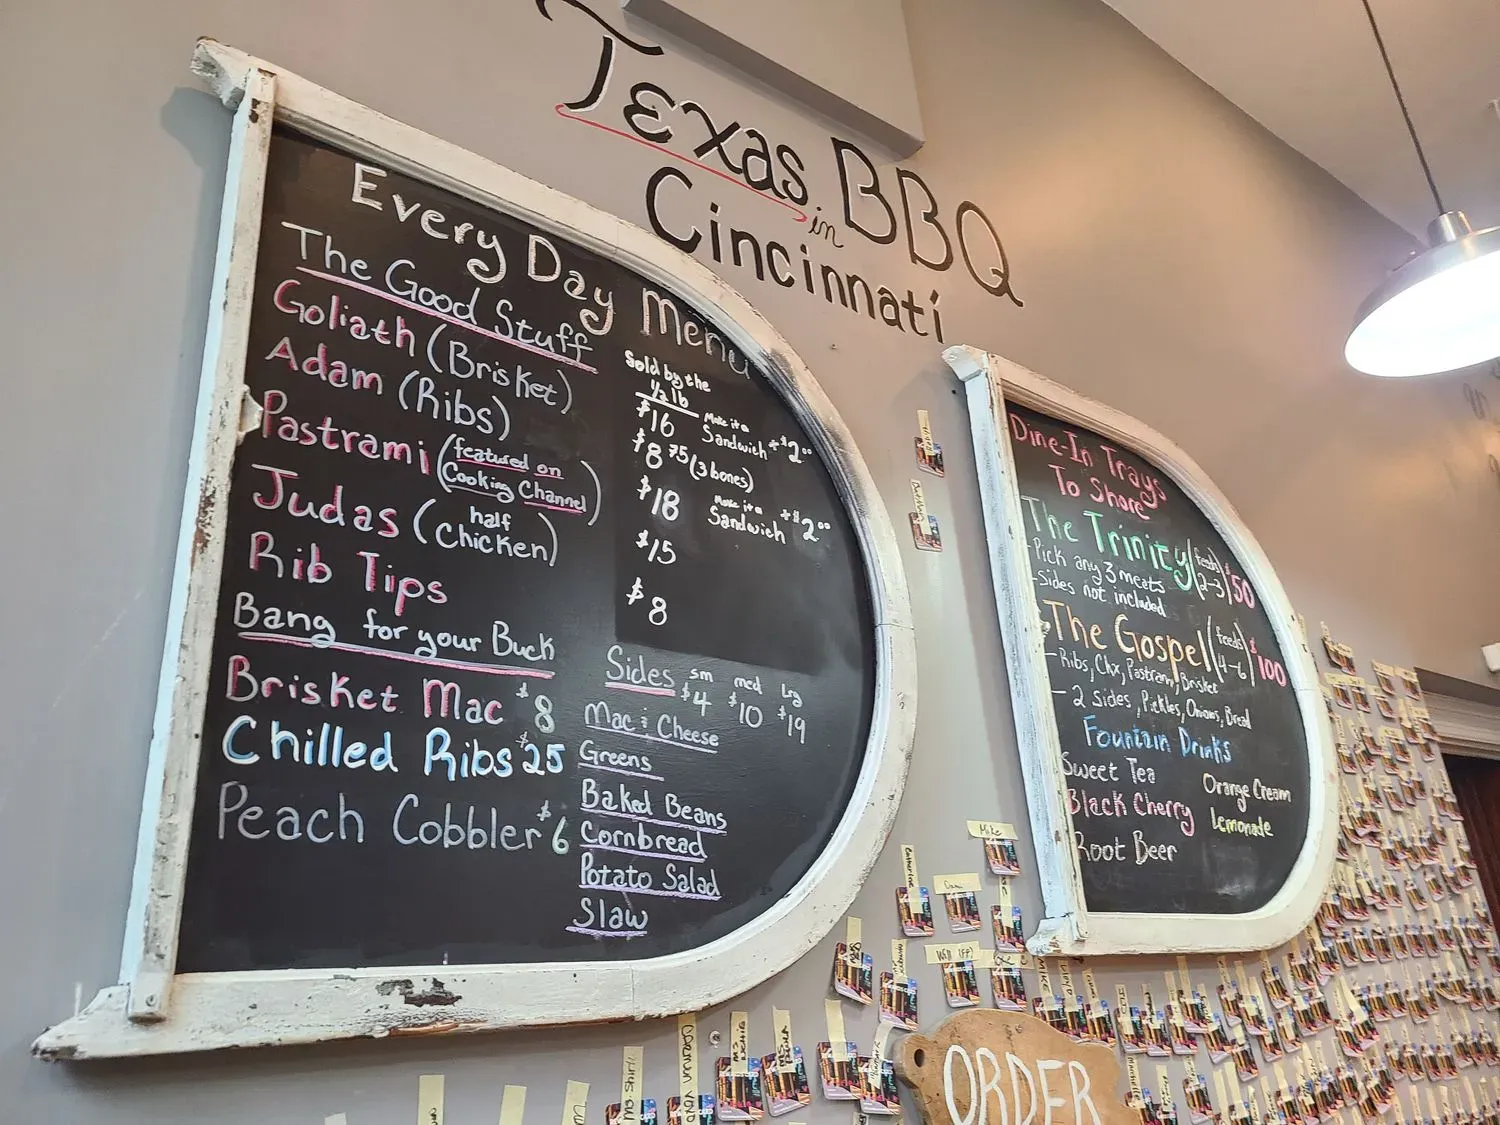 Texas BBQ
in
Cincinnati
Every Day Menu
The Good Stuff
Sold by the
1/2 lb
Goliath (Brisket) $16 Make it a Sandwich +$2.00
Adam (Ribs) $8.75 (3 bones)
Pastrami (featured on Cooking Channel) $18 Make it a Sandwich +$2.00
Judas (half Chicken) $15
Rib Tips $8
Bang for your Buck
Brisket Mac $8
Chilled Ribs $25
Peach Cobbler $6
Sides sm $4 med $10 Lrg $19
Mac & Cheese
Greens
Baked Beans
Cornbread
Potato Salad
Slaw
Dine-In Trays
To Share
The Trinity (feeds 2-3) $50
-Pick any 3 meats
-Sides not included
The Gospel (feeds 4-6) $100
- Ribs, Chx, Pastrami, Brisket
- 2 Sides, Pickles, Onions, Bread
Fountain Drinks
Sweet Tea
Orange Cream
Black Cherry
Lemonade
Root Beer
Mike
ORDER